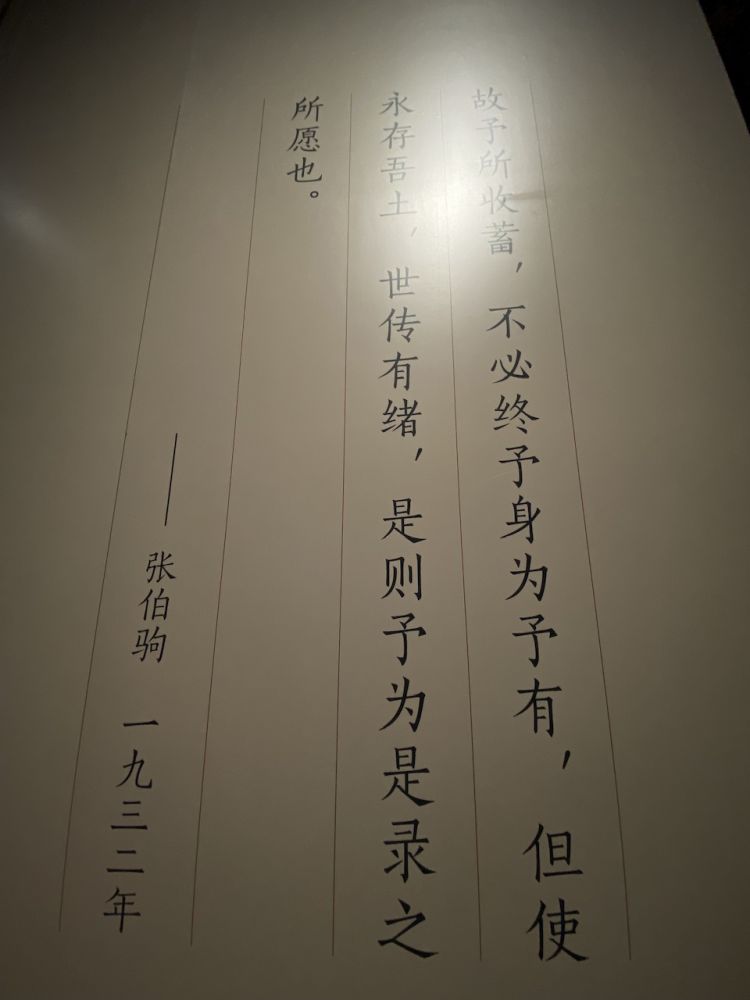 故予所收蓄，不必终予身为予有，但使
永存吾土，世传有绪，是则予为是录之
所愿也。
——张伯驹 一九三二年